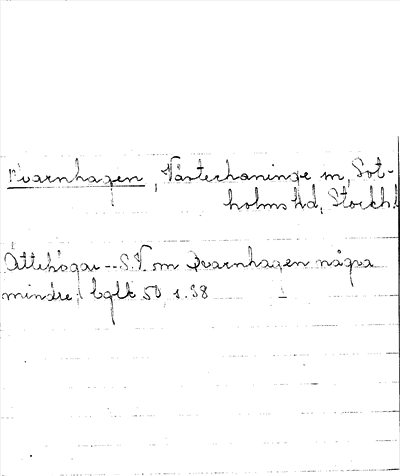 Qvarnhagen, Västerhaninge sn, Sot-
holms hd, Stockh. l
Ättehögar -- S.V. om Qvarnhagen några
mindre. Lglk 50 s. 38